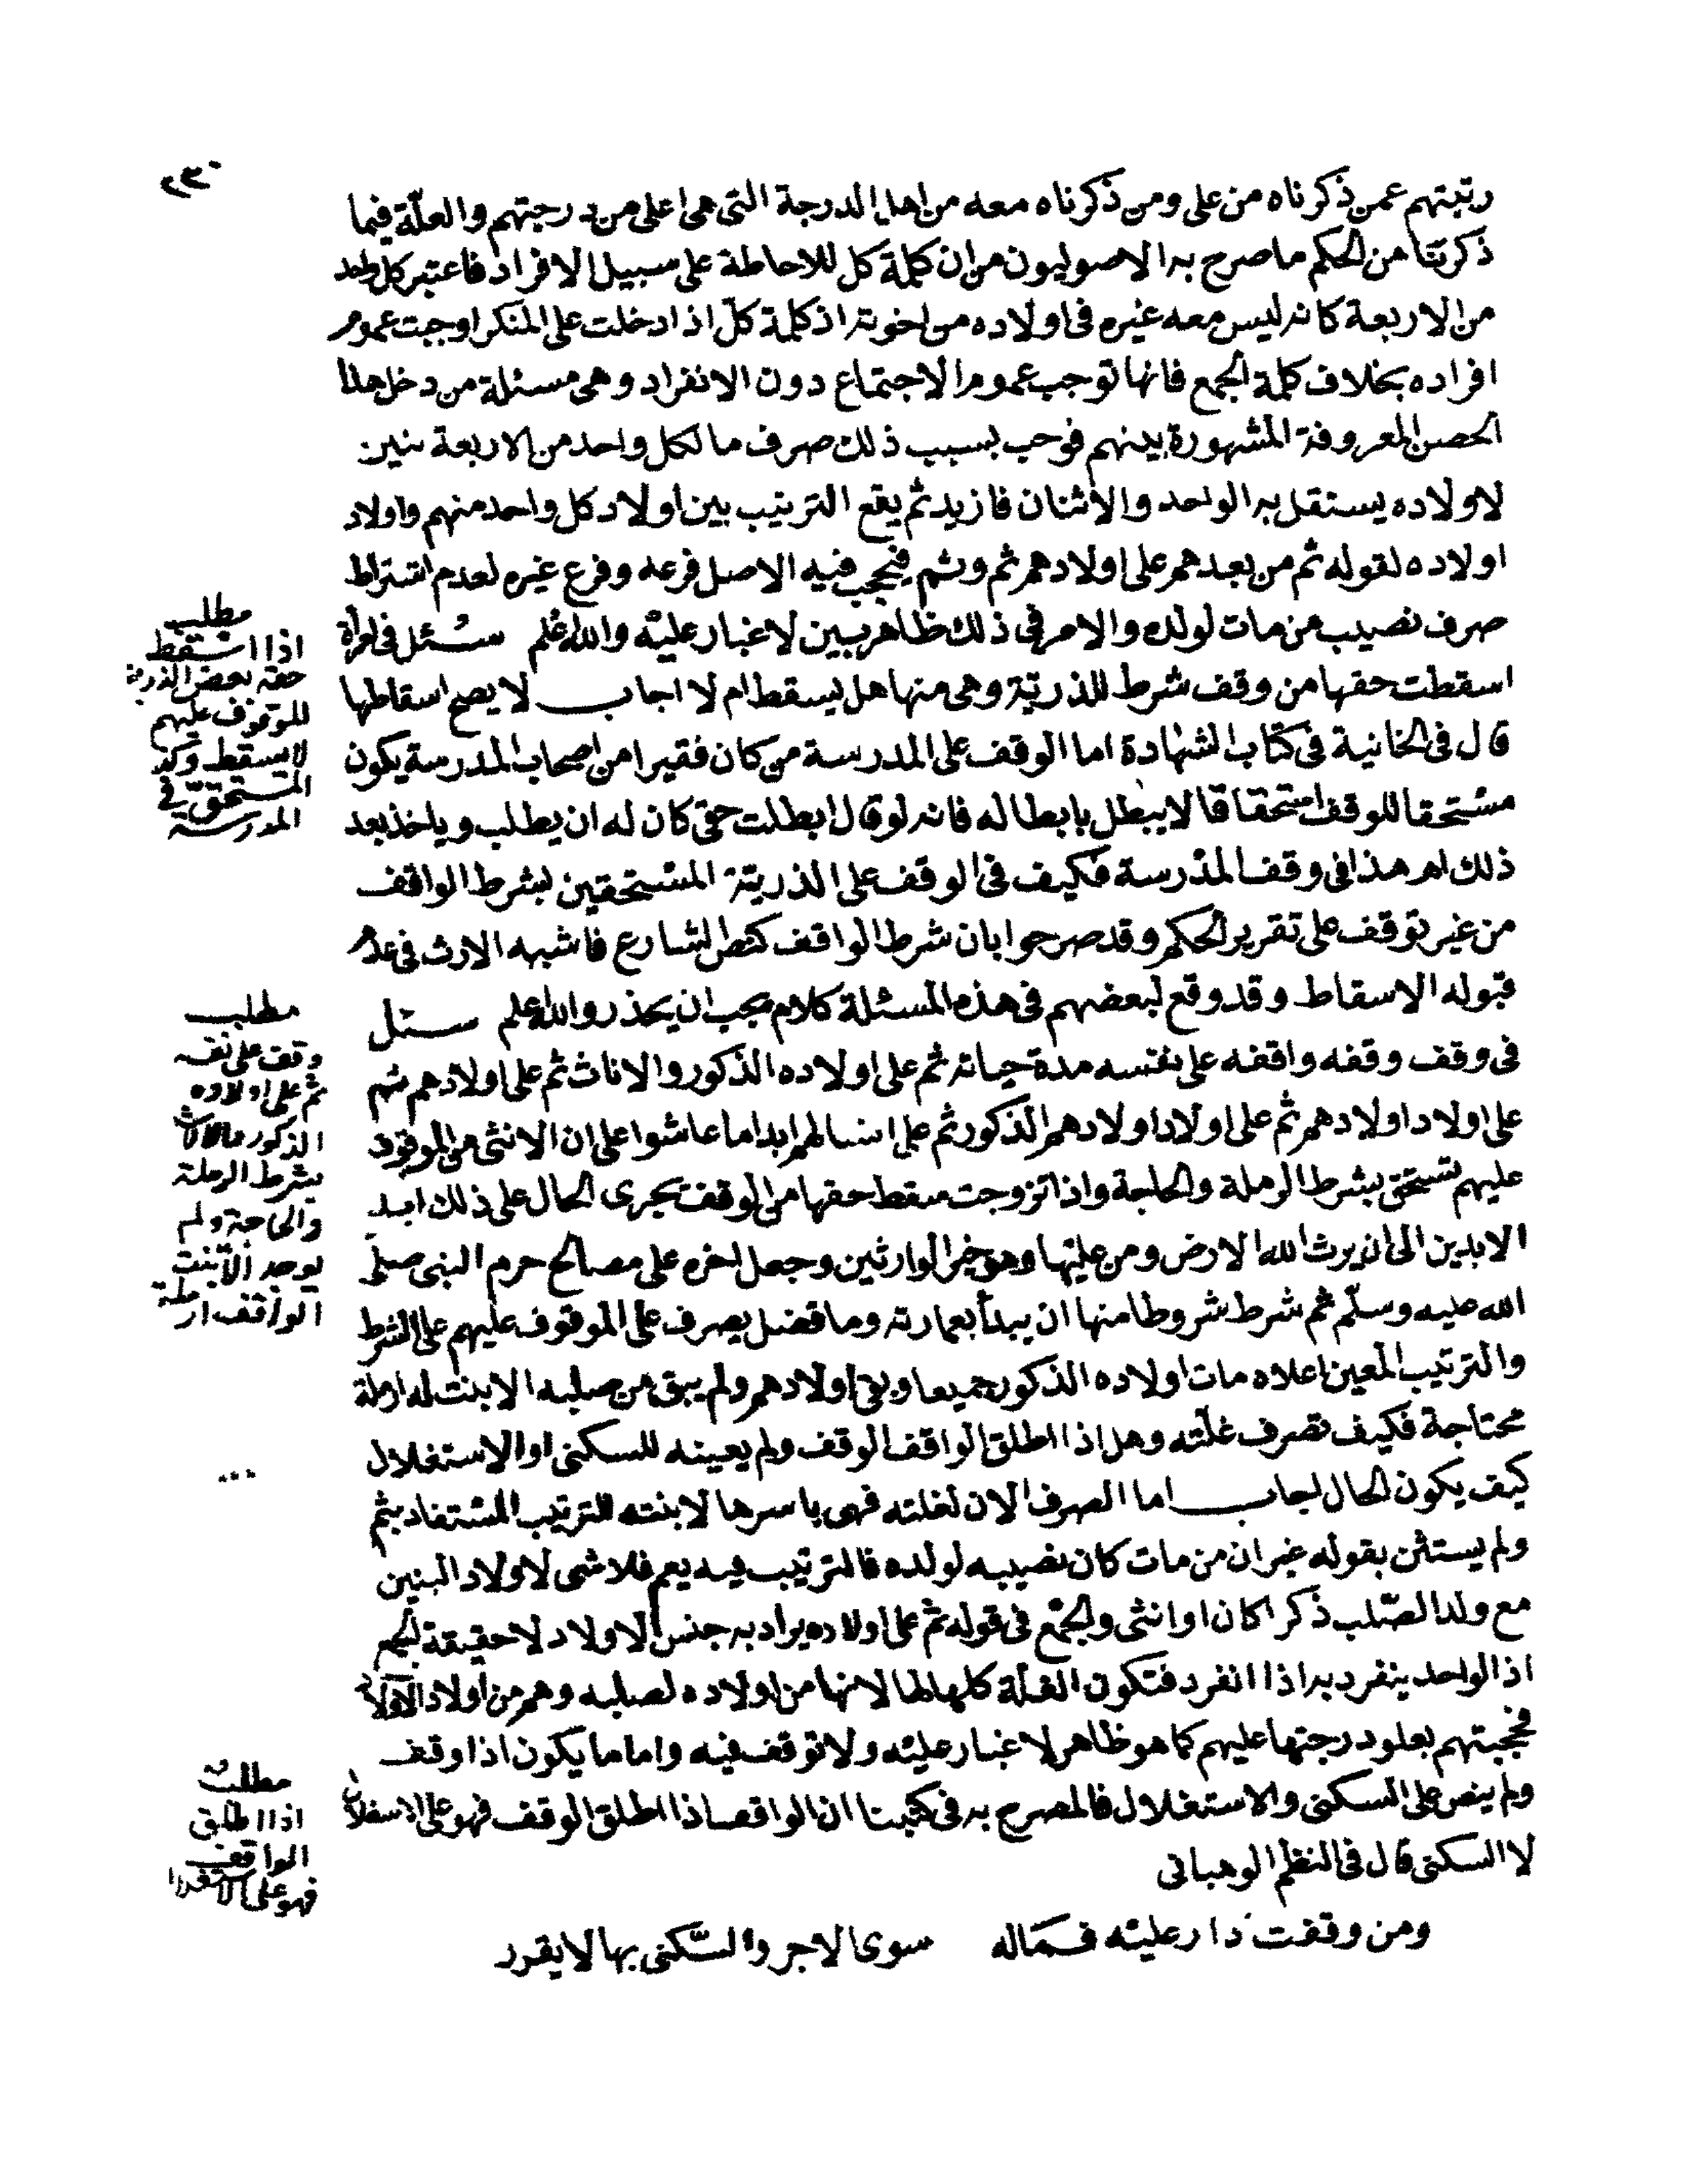 ٢٣٠
رتبتهم عمن ذكرناه من على ومن ذكرناه معه من اهل الدرجة التى هى اعلى من درجتهم والعلّة فيما
ذكرنا من الحكم ما صرح به الاصوليون من ان كلمة كل للاحاطة على سبيل الافراد فاعتبر كل واحد
من الاربعة كانه ليس معه غيره فى اولاده من اخوته اذ كلمة كلّ اذا دخلت على المنكر اوجبت عموم
افراده بخلاف كلمة الجمع فانها توجب عموم الاجتماع دون الانفراد وهى مسئلة من دخل هذا
الحصن المعروفة المشهورة بينهم فوجب بسبب ذلك صرف ما لكل واحد من الاربعة بنين
لاولاده يستقل به الواحد والاثنان فازيد ثم يقع الترتيب بين اولاد كل واحد منهم واولاد
اولاده لقوله ثم من بعدهم على اولادهم ثم وثم فيحجب فيه الاصل فرعه وفرع غيره لعدم اشتراط
صرف نصيب من مات لولده والامر فى ذلك ظاهر بين لا غبار عليه والله اعلم سئل فى امرأة
اسقطت حقها من وقف شرط للذريّة وهى منها هل يسقط ام لا اجاب لا يصح اسقاطها
قال فى الخانية فى كتاب الشهادة اما الوقف على المدرسة من كان فقيرا من اصحاب المدرسة يكون
مستحقا للوقف استحقاقا لا يبطل بابطاله فانه لو قال ابطلت حقى كان له ان يطلب وياخذ بعد
ذلك اه هذا فى وقف المدرسة فكيف فى الوقف على الذرية المستحقين بشرط الواقف
من غير توقف على تقرير الحكم وقد صرحوا بان شرط الواقف كنص الشارع فاشبه الارث فى عدم
قبوله الاسقاط وقد وقع لبعضهم فى هذه المسئلة كلام يجب ان يحذر والله اعلم سئل
فى وقف وقفه واقفه على نفسه مدة حياته ثم على اولاده الذكور والاناث ثم على اولادهم ثم
على اولاد اولادهم ثم على اولاد اولاد اولادهم الذكور ثم على انسالهم ابدا ما عاشوا على ان الانثى من الموقوف
عليهم تستحق بشرط الرملة والحاجة واذا تزوجت سقط حقها من الوقف يجرى الحال على ذلك ابد
الابدين الى ان يرث الله الارض ومن عليها وهو خير الوارثين وجعل اخره على مصالح حرم النبى صلّى
الله عليه وسلّم ثم شرط شروطا منها ان يبدأ بعمارته وما فضل يصرف على الموقوف عليهم على الشرط
والترتيب المعين اعلاه مات اولاده الذكور جميعا وبقى اولادهم ولم يبق من صلبه الا بنت له ارملة
محتاجة فكيف تصرف غلّته وهل اذا اطلق الواقف الوقف ولم يعينه للسكنى او الاستغلال
كيف يكون الحال اجاب اما الصرف الان لغلته فهى باسرها لابنته للترتيب المستفاد بثم
ولم يستثن بقوله غير ان من مات كان نصيبه لولده فالترتيب فيه يعم فلا شى لاولاد البنين
مع ولد الصّلب ذكرا كان او انثى والجمع فى قوله ثم على اولاده يراد به جنس الاولاد لا حقيقة الجمع
اذ الواحد ينفرد به اذا انفرد فتكون الغلة كلها لها لانها من اولاده لصلبه وهم من اولاد الاولاد
فحجبتهم بعلو درجتها عليهم كما هو ظاهر لا غبار عليه ولا توقف فيه واما ما يكون اذا وقف
ولم ينص على السكنى والاستغلال فالمصرح به فى كتبنا ان الواقف اذا اطلق الوقف فهو على الاستغلال
لا السكنى قال فى النظم الوهبانى
ومن وقفت دار عليه فما له سوى الاجر والسّكنى بها لا يقرر
مطلب
اذا اسقط
حقه بعض الذرية
للموقوف عليهم
لا يسقط وكذ
المستحق فى
المدرسة
مطلب
وقف على نفسه
ثم على اولاده
الذكور والاناث
بشرط الرملة
والحاجة ولم
يوجد الا بنت
الواقف ارملة
مطلب
اذا اطلق
الواقف
فهو على الاستغلال